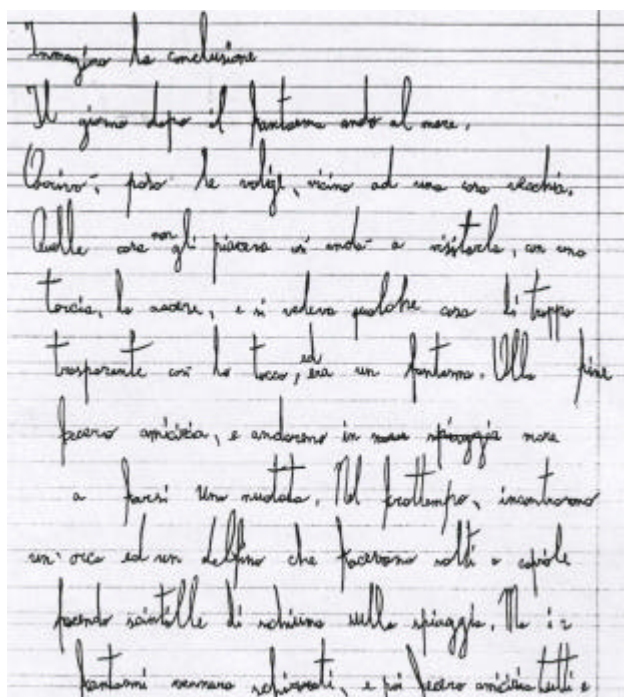 Immagino la conclusione
Il giorno dopo il fantasma andò al mare.
Arrivò, posò le valige, vicino ad una casa vecchia.
Quella casa non gli piaceva così andò a visitarla, con una
torcia, lo accere, e si vedeva qualche cosa di troppo
trasparente così lo tocco, ed era un fantasma. Alla fine
fecero amicizia, e andarono in spiaggia mare
a farsi una nuotata. Nel frattempo, incontrarono
un'orca ed un delfino che facevano salti e capriole
facendo scintille di schiuma sulla spiaggia. Ma i 2
fantasmi vennero schizzati, e poi fecero amicizia tutti e